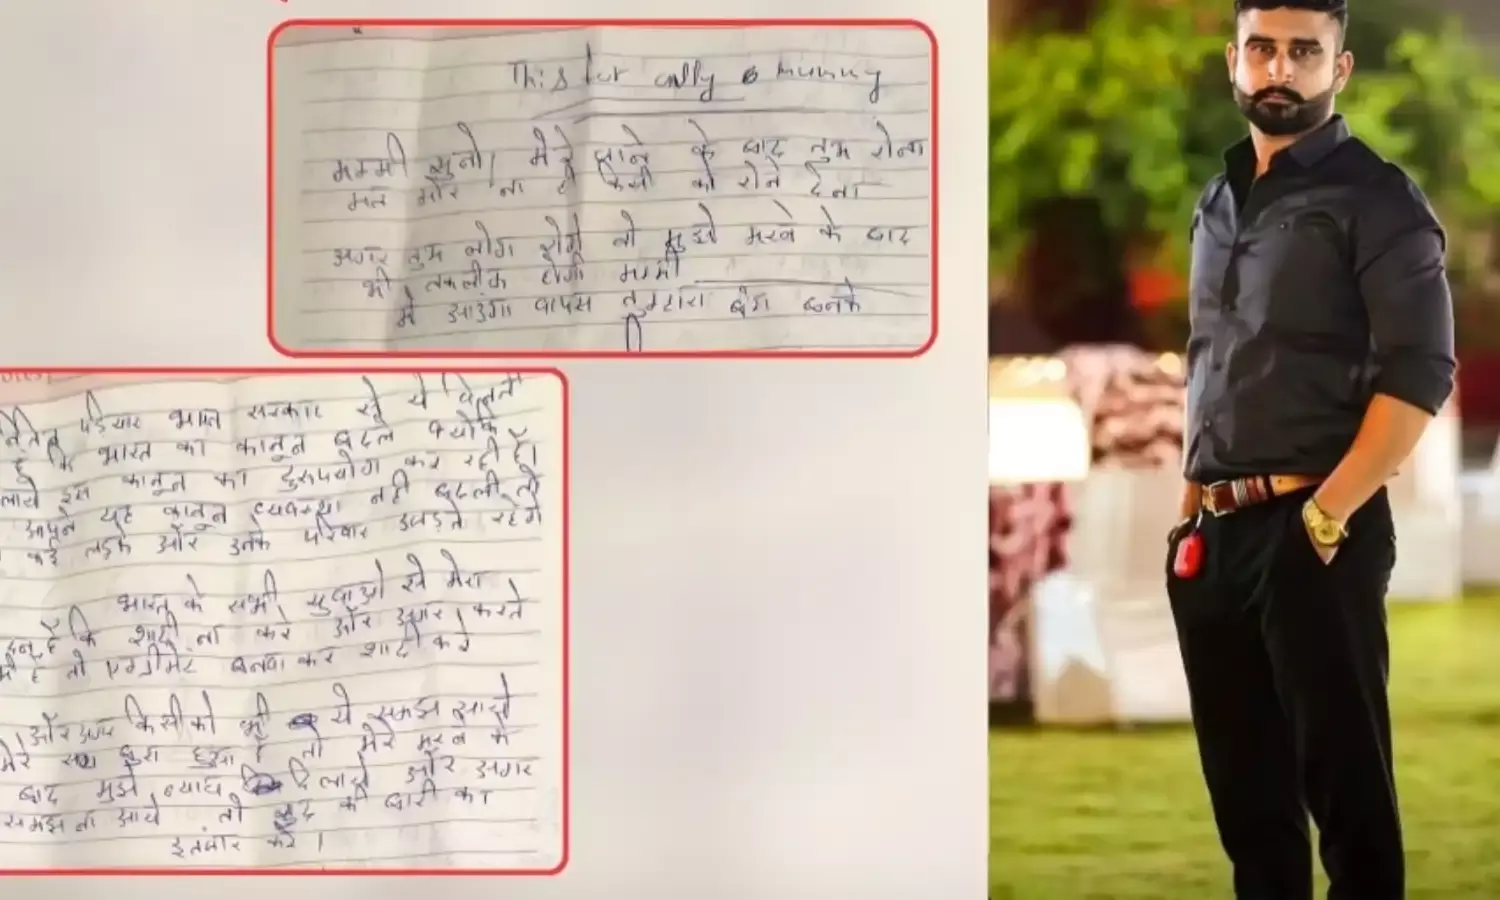 This for only mummy
मम्मी सुनो। मेरे जाने के बाद तुम रोना
मत और ना ही किसी को रोने देना
अगर तुम लोग रोगे तो मुझे मरने के बाद
भी तकलीफ होगी मम्मी
मैं आउंगा वापस तुम्हारा बेटा बनके
पड़ियार भारत सरकार से ये विनती
है कि भारत का कानून बदले क्योंकि
इस कानून का दुरुपयोग कर रही हैं।
आपने यह कानून व्यवस्था नही बदली तो
कई लड़के और उनके परिवार उजड़ते रहेंगे
भारत के सभी युवाओ से मेरा
है कि शादी ना करे और अगर करते
है तो एग्रीमेंट बनवाकर शादी करे
और अगर किसीको भी ये समझ आये
मेरे साथ बुरा हुआ है तो मेरे मरने के
बाद मुझे न्याय दिलाये और अगर
समझ ना आये तो खुद की बारी का
इंतजार करे।